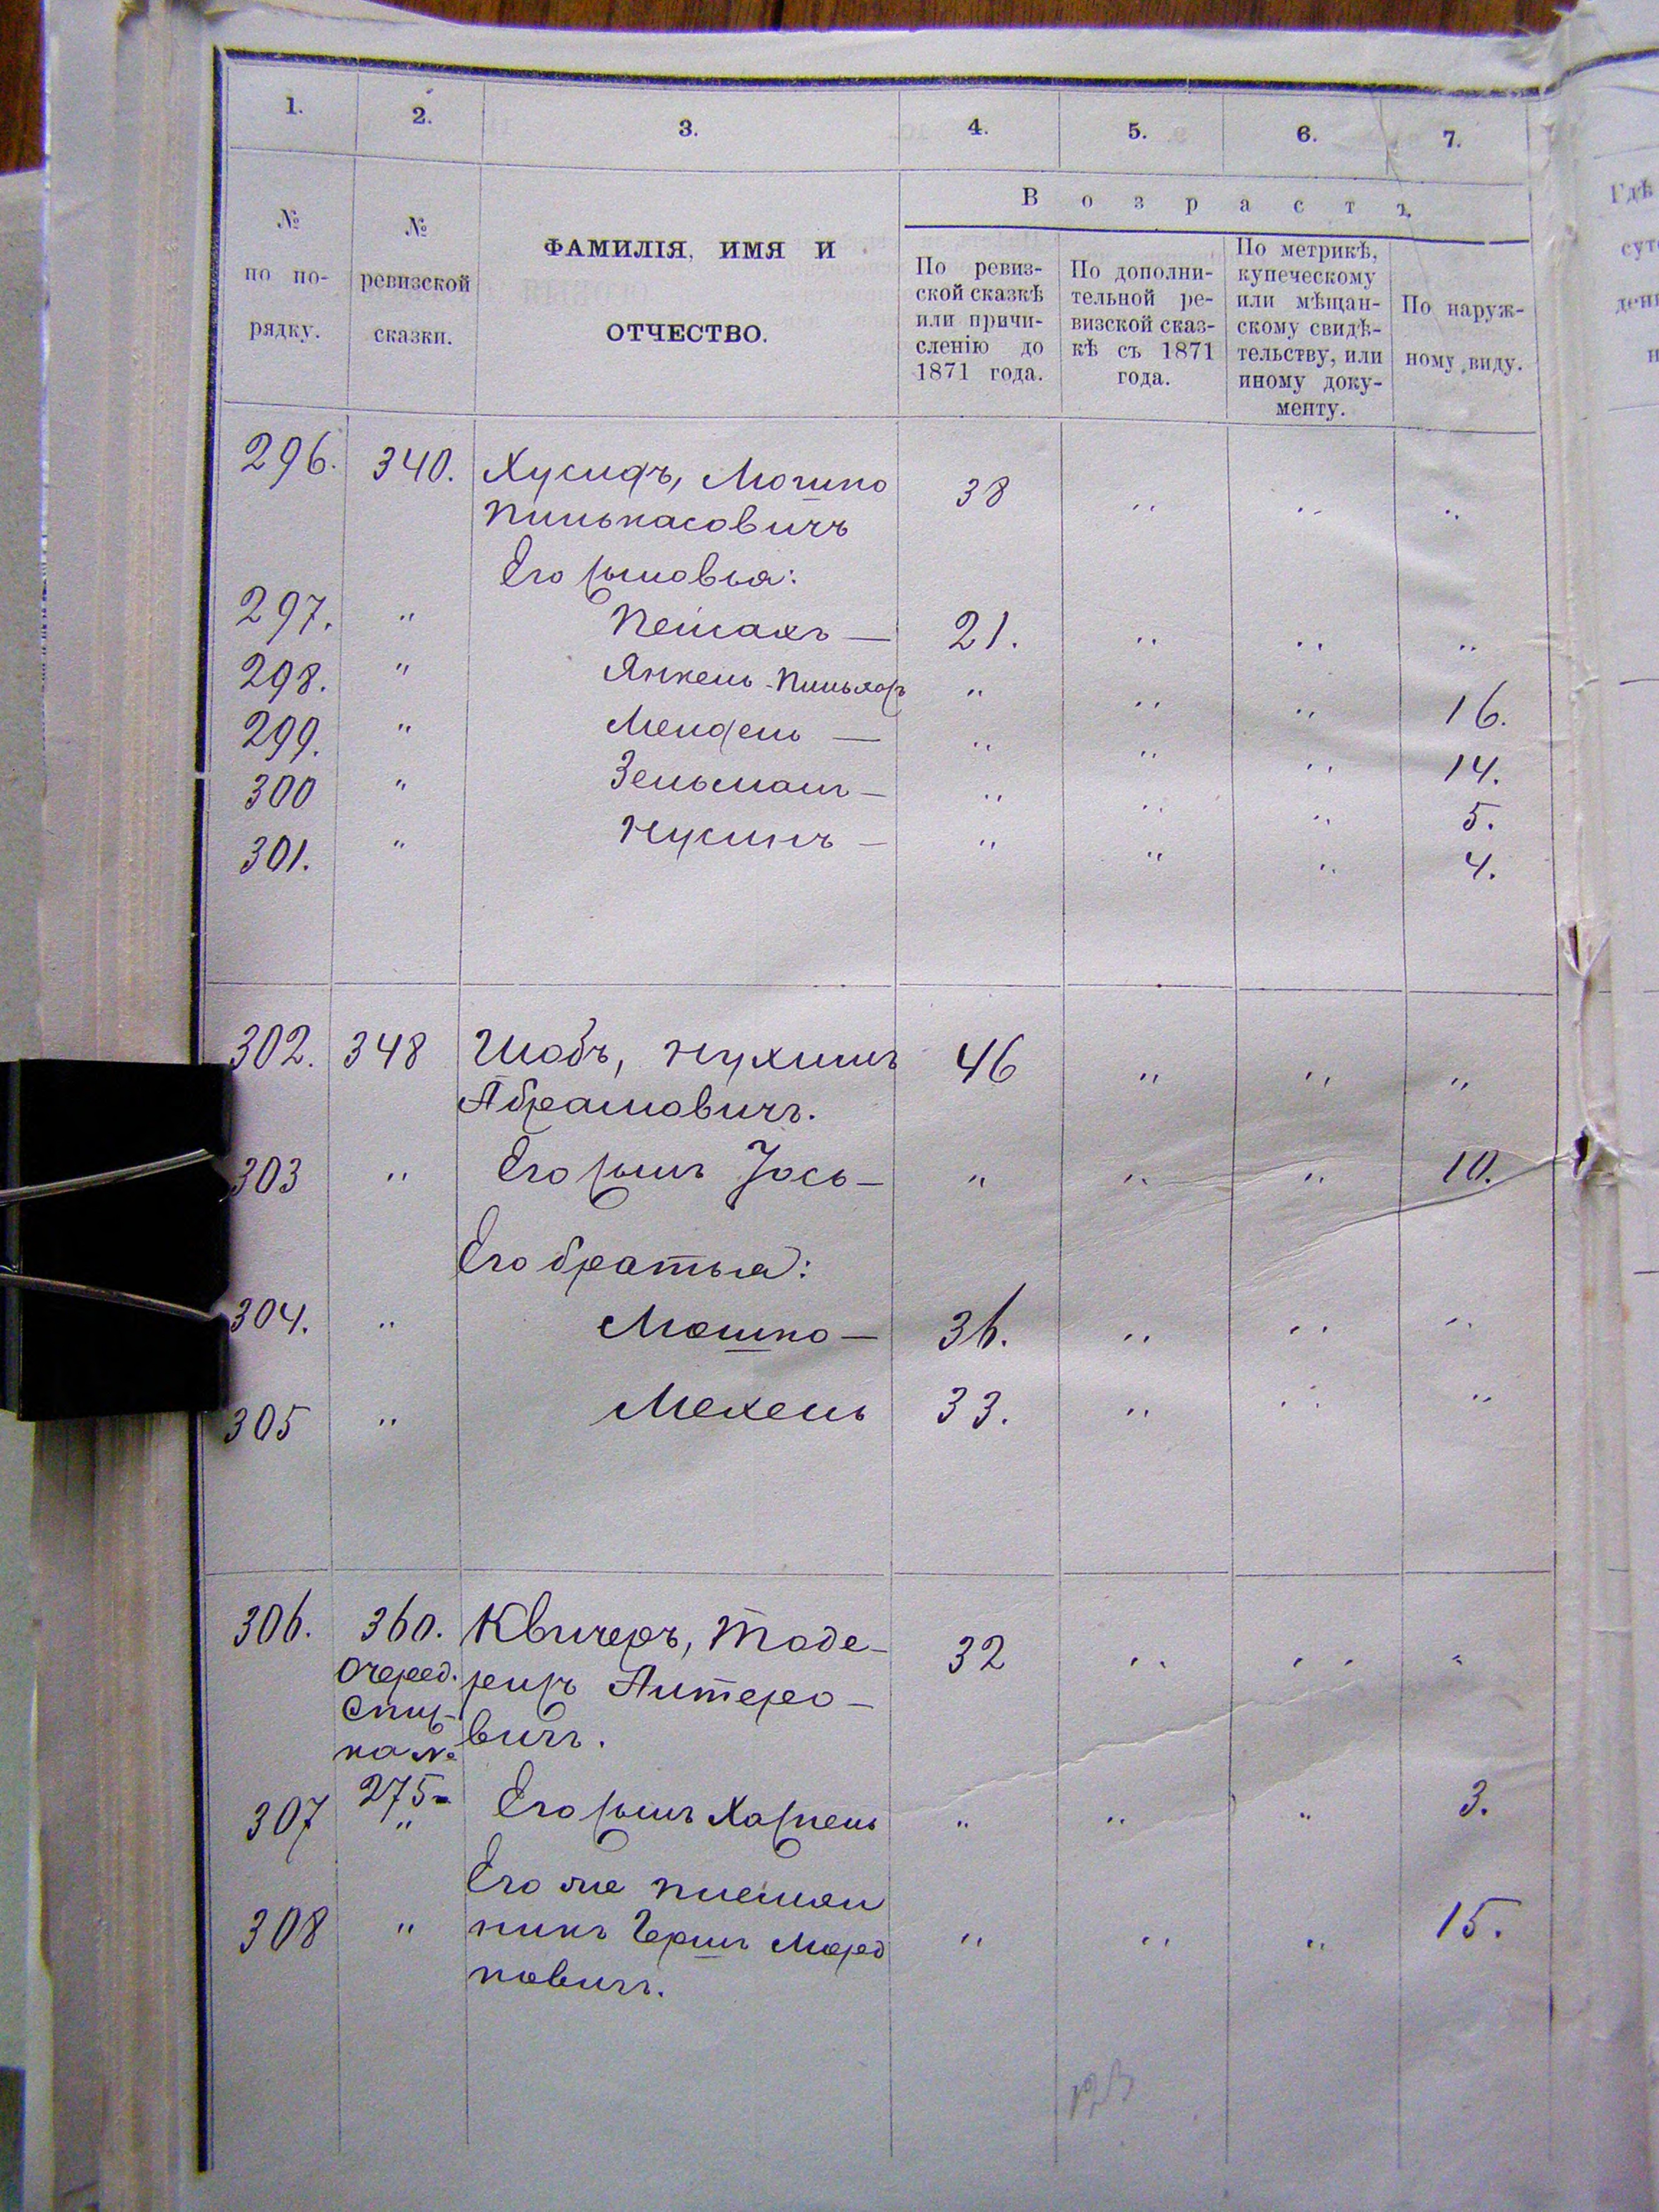 1. 2. 3. 4. 5. 6. 7.
№ по по-рядку.
№ ревизской сказки.
ФАМИЛІЯ, ИМЯ И
ОТЧЕСТВО.
Возрастъ.
По ревиз-
ской сказкѣ
или причи-
сленію до
1871 года.
По дополни-
тельной ре-
визской сказ-
кѣ съ 1871
года.
По метрикѣ,
купеческому
или мѣщан-
скому свидѣ-
тельству, или
иному доку-
менту.
По наруж-
ному виду.
296. 340. Хусидъ, Мошко 38 " " "
Пинькасовичъ
Его сыновья:
297. " Пейсахъ — 21. " " "
298. " Янкель-Пиньхас " " " 16.
299. " Мендель — " " " 14.
300 " Зельманъ — " " " 5.
301. " Нусинъ — " " " 4.
302. 348 Шабъ, Нухимъ 46 " " "
Абрамовичъ.
303 " Его сынъ Іось — " " " 10.
Его братья:
304. " Мошко — 36. " " "
305 " Мехель 33. " " "
306. 360. Квичеръ, Тоде- 32 " " "
Очеред. ресъ Антеро-
Спис- вичъ.
ка №
275
307 " Его сынъ Хаскель " " " 3.
Его же племян
308 " никъ Гершъ Морд " " " 15.
ковичъ.
123